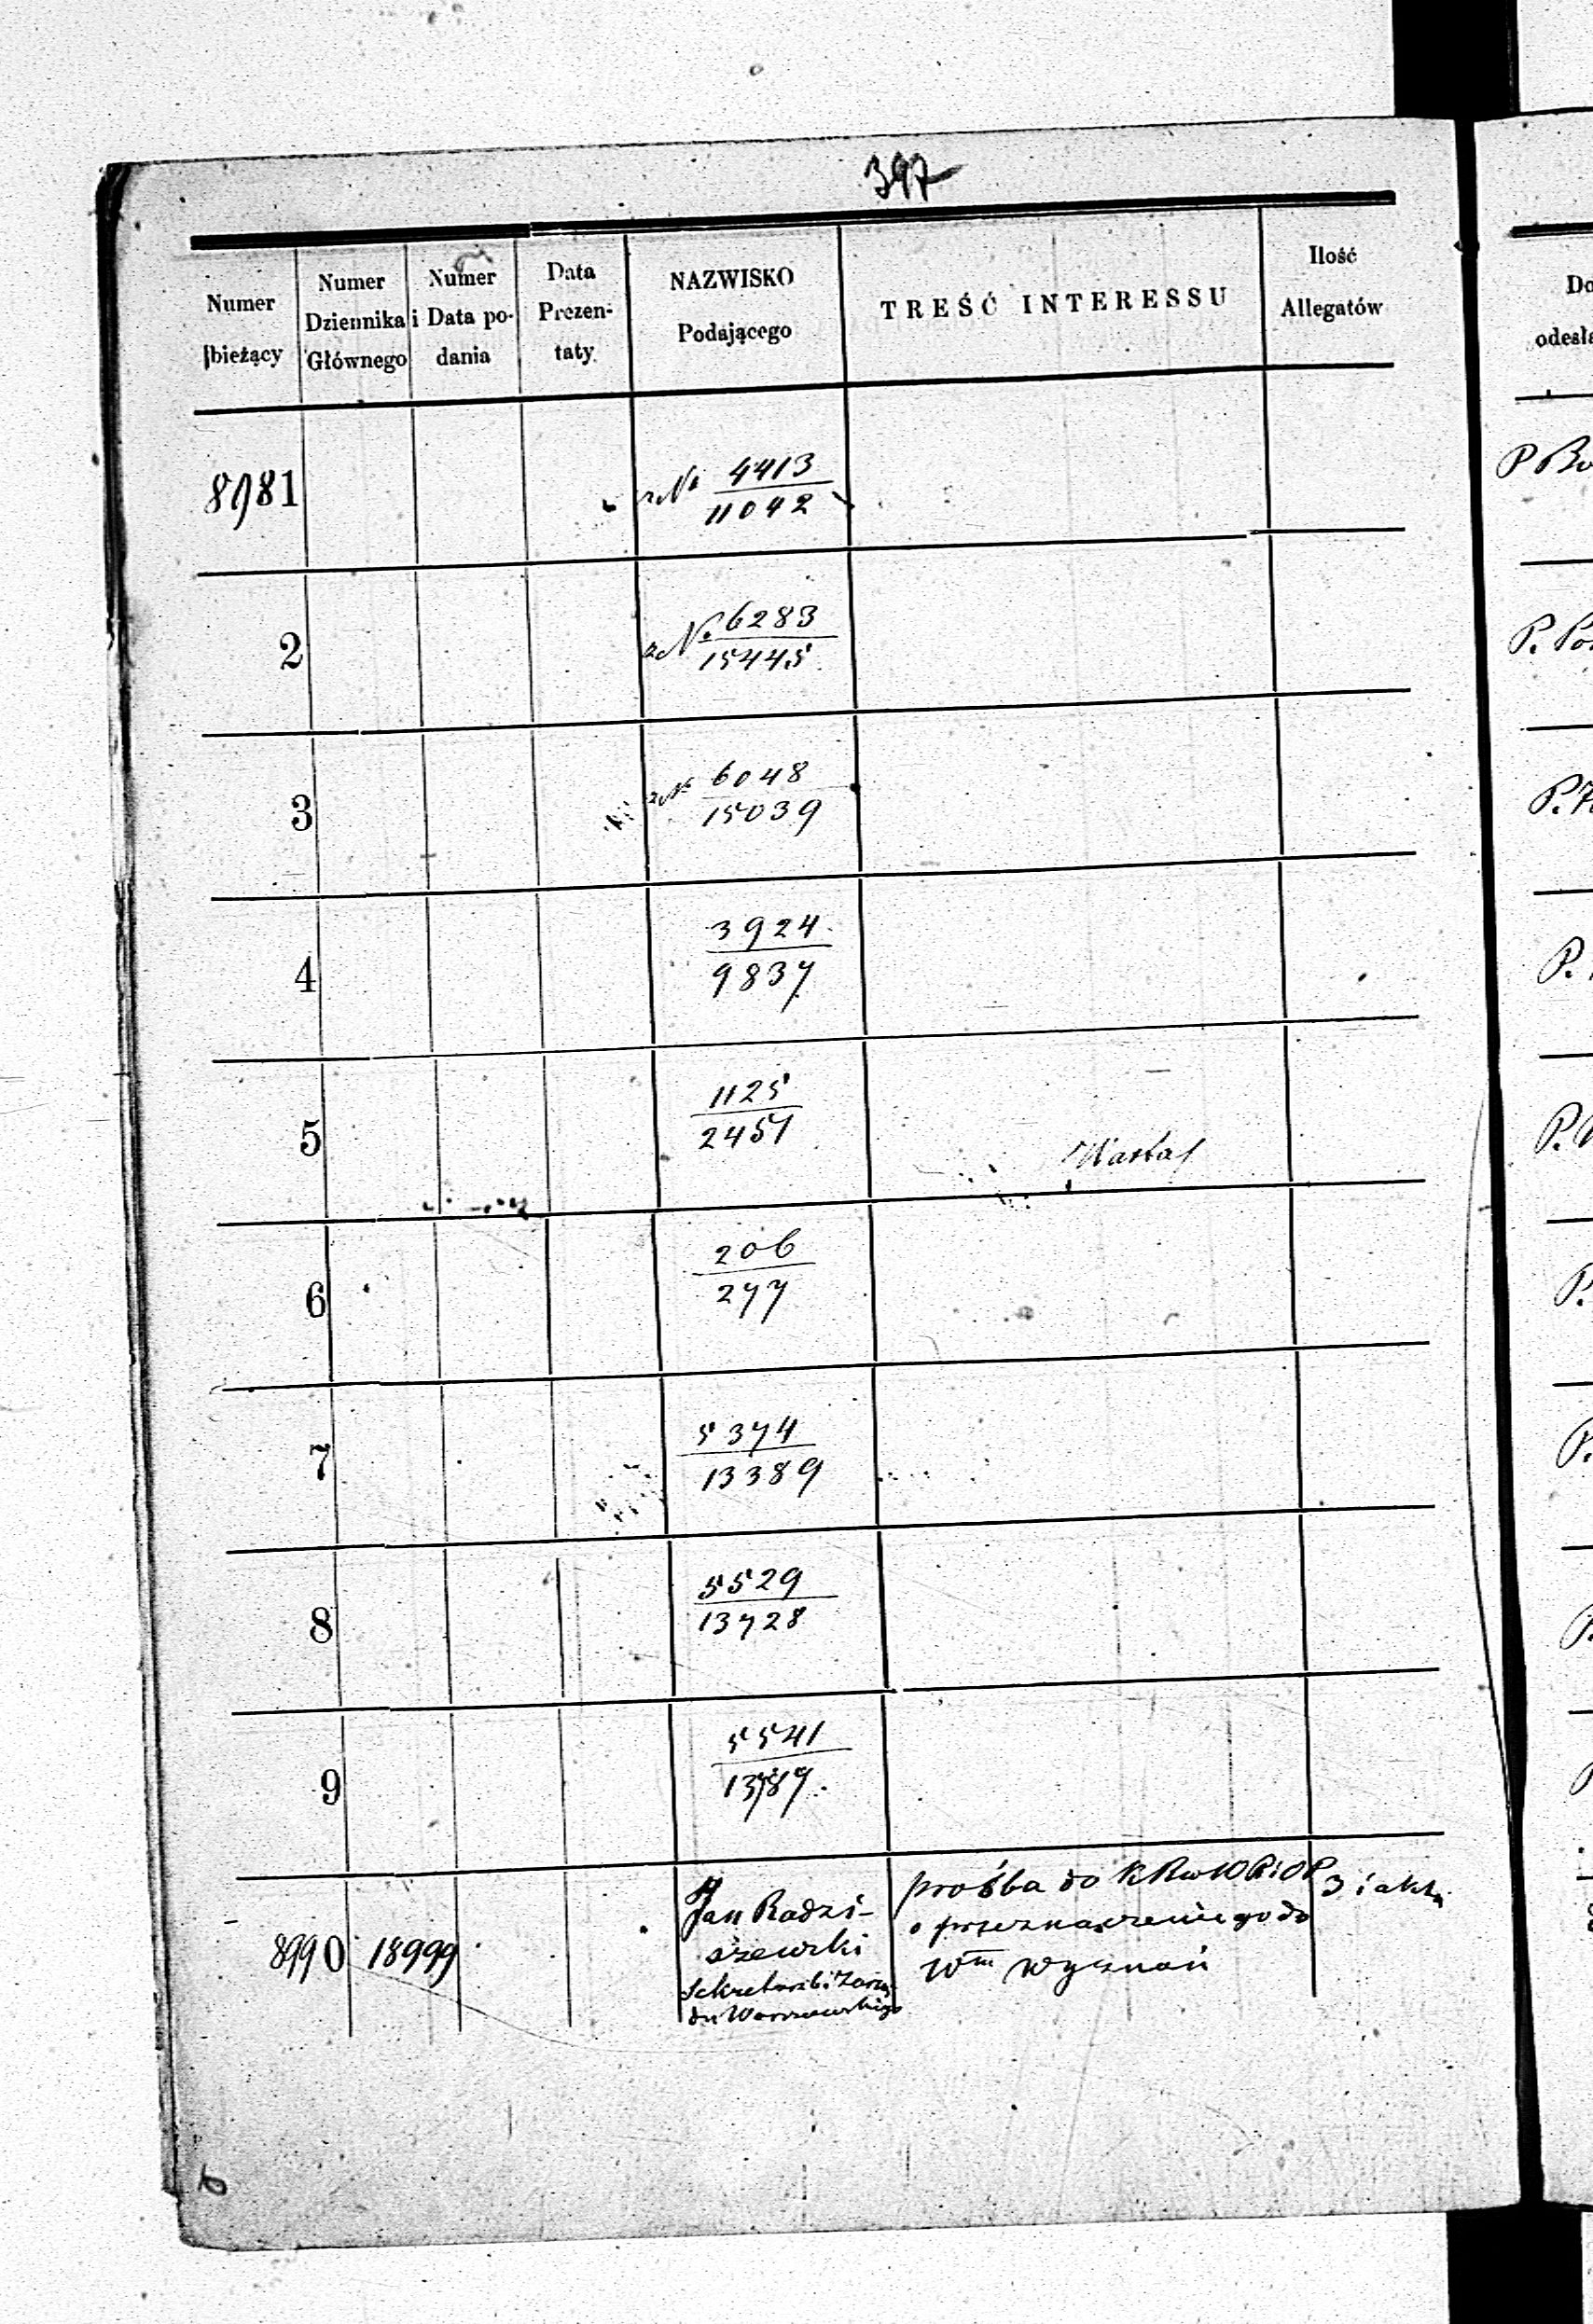 397
Numer bieżący
Numer Dziennika Głównego
Numer i Data podania
Data Prezentaty
NAZWISKO Podającego
TREŚĆ INTERESSU
Ilość Allegatów
8981
z № 4413
11042
2
z №. 6283
15445
3
z № 6048
15039
4
3924
9837
5
1125
2457
6
206
277
7
5374
13389
8
5529
13728
9
5541
13789.
8990 18999
Jan Radzi-
szewski
Sekretarz b. Zarzą
du Warszawskiego
prośba do
o przeznaczenie go do
Wm wyznań
3 i akta
Do
odesła
P Bo
P. Po
P.
P.
P.
P.
P.
P.